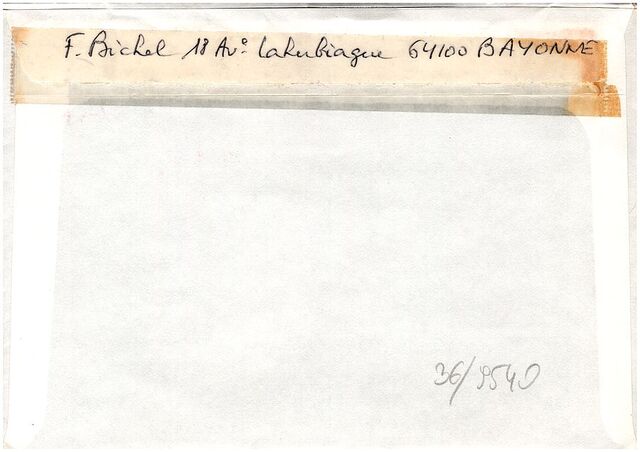 F. Bichel 18 Avᵉ Lahubiague 64100 BAYONNE
36/9540